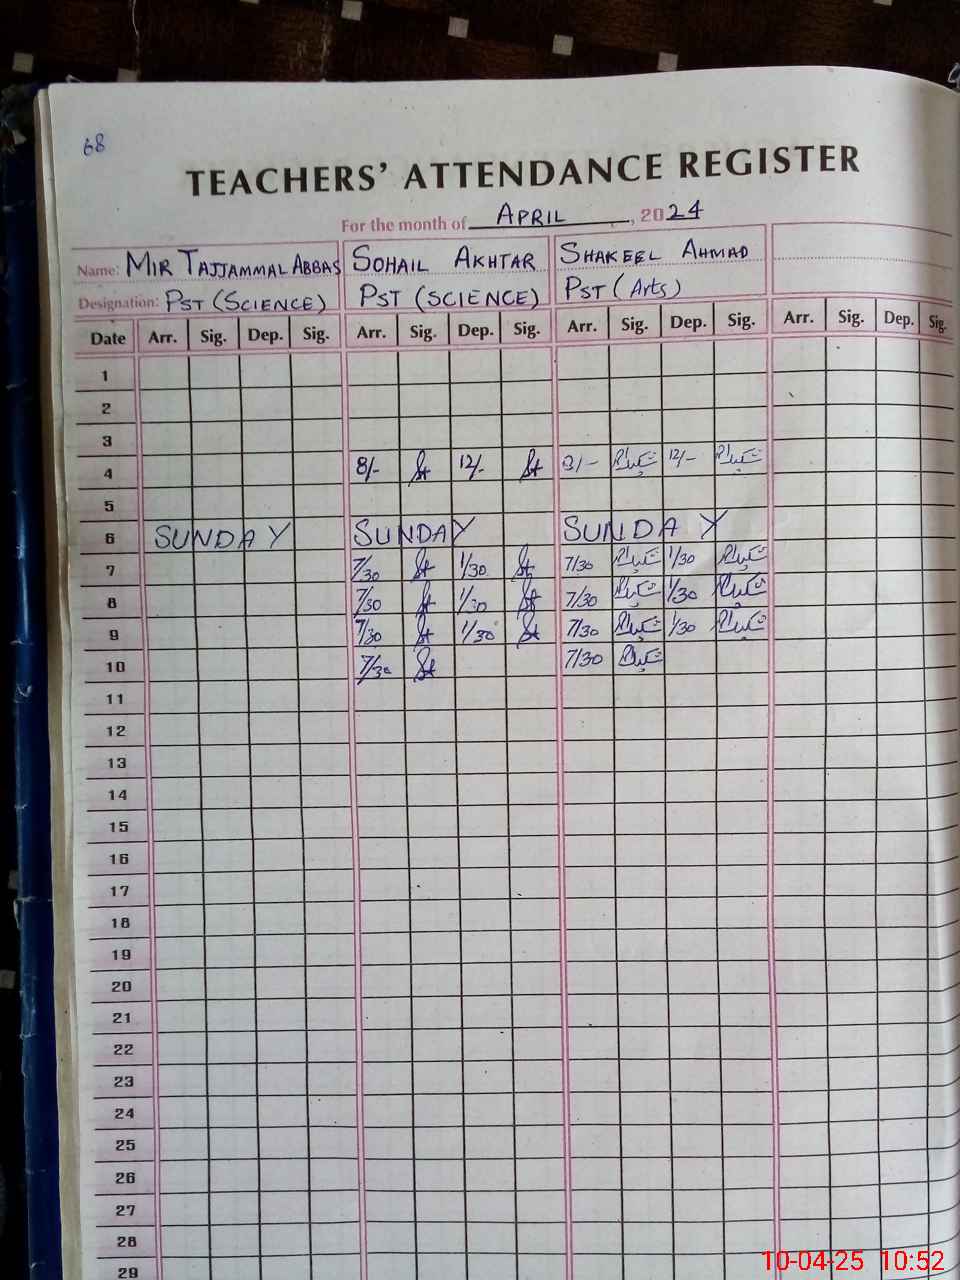 68
TEACHERS' ATTENDANCE REGISTER
For the month of APRIL, 2024
Name: MIR TAJJAMMAL ABBAS SOHAIL AKHTAR SHAKEEL AHMAD
Designation: PST (SCIENCE) PST (SCIENCE) PST (Arts)
Date Arr. Sig. Dep. Sig. Arr. Sig. Dep. Sig. Arr. Sig. Dep. Sig. Arr. Sig. Dep. Sig.
1
2
3
4 8/- 12/- 8/- شکیل 12/- شکیل
5
6 SUNDAY SUNDAY SUNDAY
7 7/30 1/30 7/30 شکیل 1/30 شکیل
8 7/30 1/30 7/30 شکیل 1/30 شکیل
9 7/30 1/30 7/30 شکیل 1/30 شکیل
10 7/30 7/30 شکیل
11
12
13
14
15
16
17
18
19
20
21
22
23
24
25
26
27
28
29
10-04-25 10:52